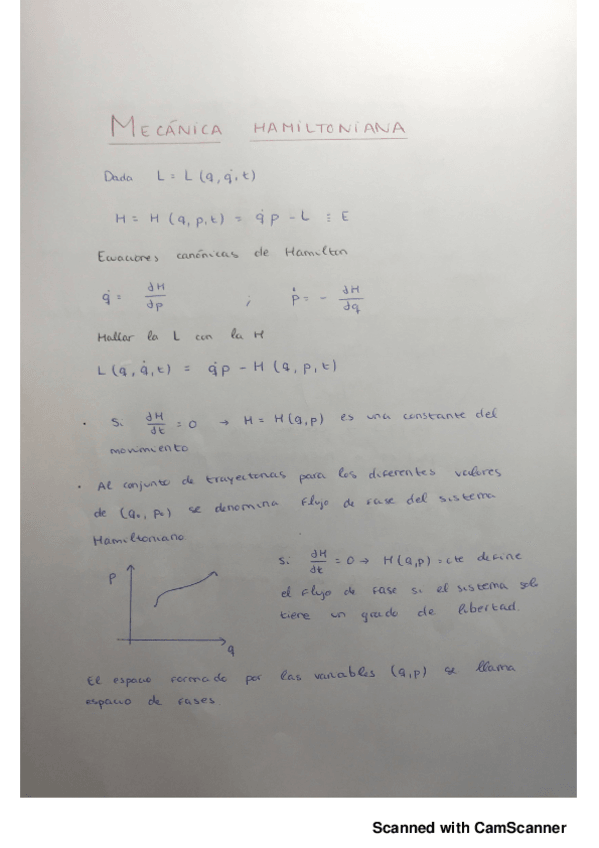 MECÁNICA HAMILTONIANA
Dada L = L (q, q̇, t)
H = H (q, p, t) = q̇ p - L ≡ E
Ecuaciones canónicas de Hamilton
q̇ = ∂H/∂p ; ṗ = - ∂H/∂q
Hallar la L con la H
L (q, q̇, t) = q̇p - H (q, p, t)
· Si ∂H/∂t = 0 → H = H(q,p) es una constante del
movimiento
· Al conjunto de trayectorias para los diferentes valores
de (q₀, p₀) se denomina flujo de fase del sistema
Hamiltoniano
Si ∂H/∂t = 0 → H(q,p) = cte define
el flujo de fase si el sistema solo
tiene un grado de libertad.
p
q
El espacio formado por las variables (q,p) se llama
espacio de fases.
Scanned with CamScanner